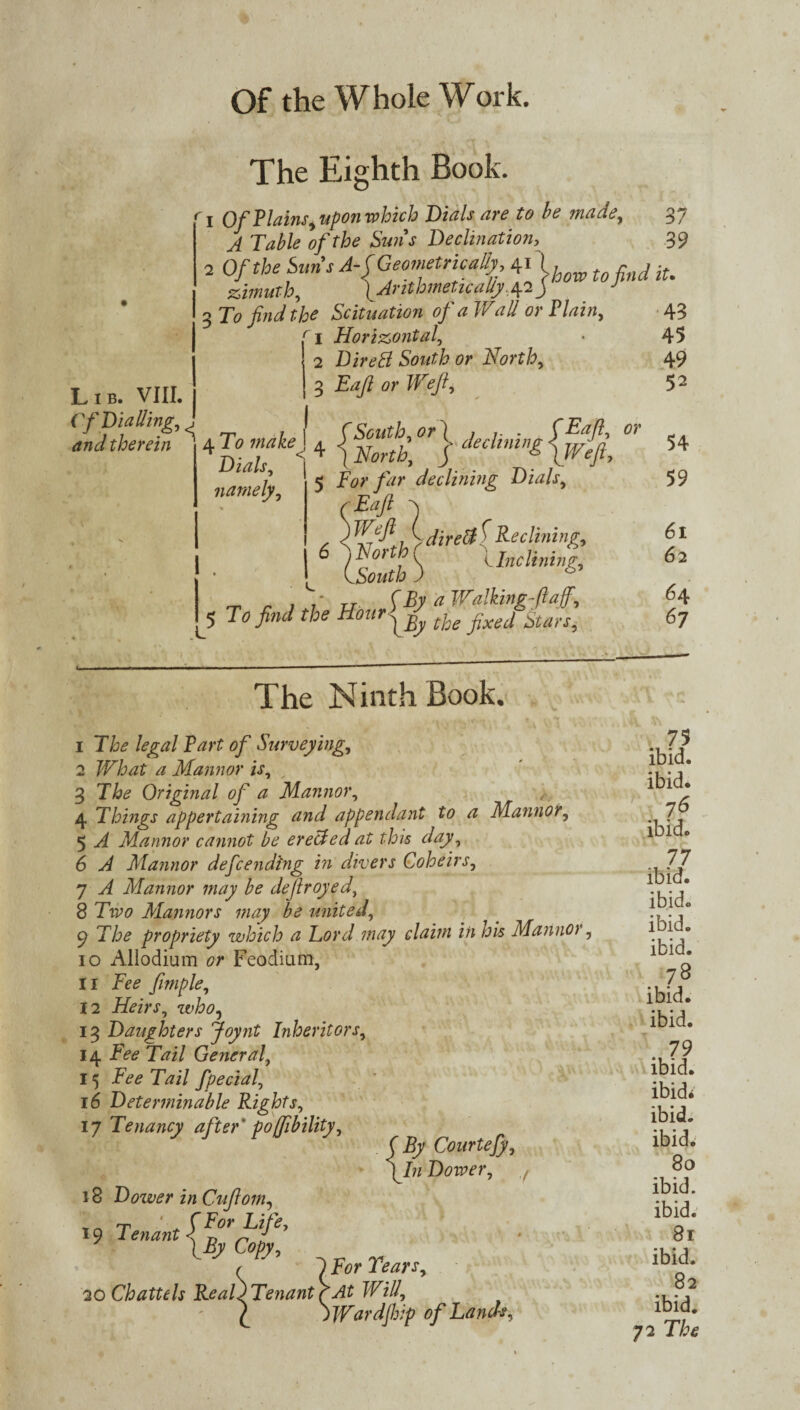 Of the Whole Work.
The Eighth Book.
LIB. VIII.
Of Dialling,
and therein
1 Of Plains, upon which Dials are to be made, 37
A Table of the Sun's Declination, 39
2 Of the Sun's A- { Geometrically, 41 } how to find it.
zimuth, { Arithmetically. 42 }
3 To find the Scituation of a Wall or Plain, 43
4 To make
Dials,
namely,
1 Horizontal, 45
2 Direct South or North, 49
3 East or West, 52
4 { South, or } declining { East, or 54
{ North, } { West,
5 For far declining Dials, 59
6 { East
West
North
South } direct { Reclining, 61
{ Inclining, 62
5 To find the Hour { By a Walking-staff, 64
{ By the fixed Stars, 67
The Ninth Book.
1 The legal Part of Surveying, 75
2 What a Mannor is, ibid.
3 The Original of a Mannor, ibid.
4 Things appertaining and appendant to a Mannor, 76
5 A Mannor cannot be erected at this day, ibid.
6 A Mannor descending in divers Coheirs, 77
7 A Mannor may be destroyed, ibid.
8 Two Mannors may be united, ibid.
9 The propriety which a Lord may claim in his Mannor, ibid.
10 Allodium or Feodium, ibid.
11 Fee simple, 78
12 Heirs, who, ibid.
13 Daughters Joynt Inheritors, ibid.
14 Fee Tail General, 79
15 Fee Tail special, ibid.
16 Determinable Rights, ibid.
17 Tenancy after possibility, ibid.
{ By Courtesy, ibid.
{ In Dower, 80
18 Dower in Custom, ibid.
19 Tenant { For Life, ibid.
{ By Copy, 81
20 Chattels Real } Tenant { For Years, ibid.
At Will, 82
Wardship of Lands, ibid.
72 The